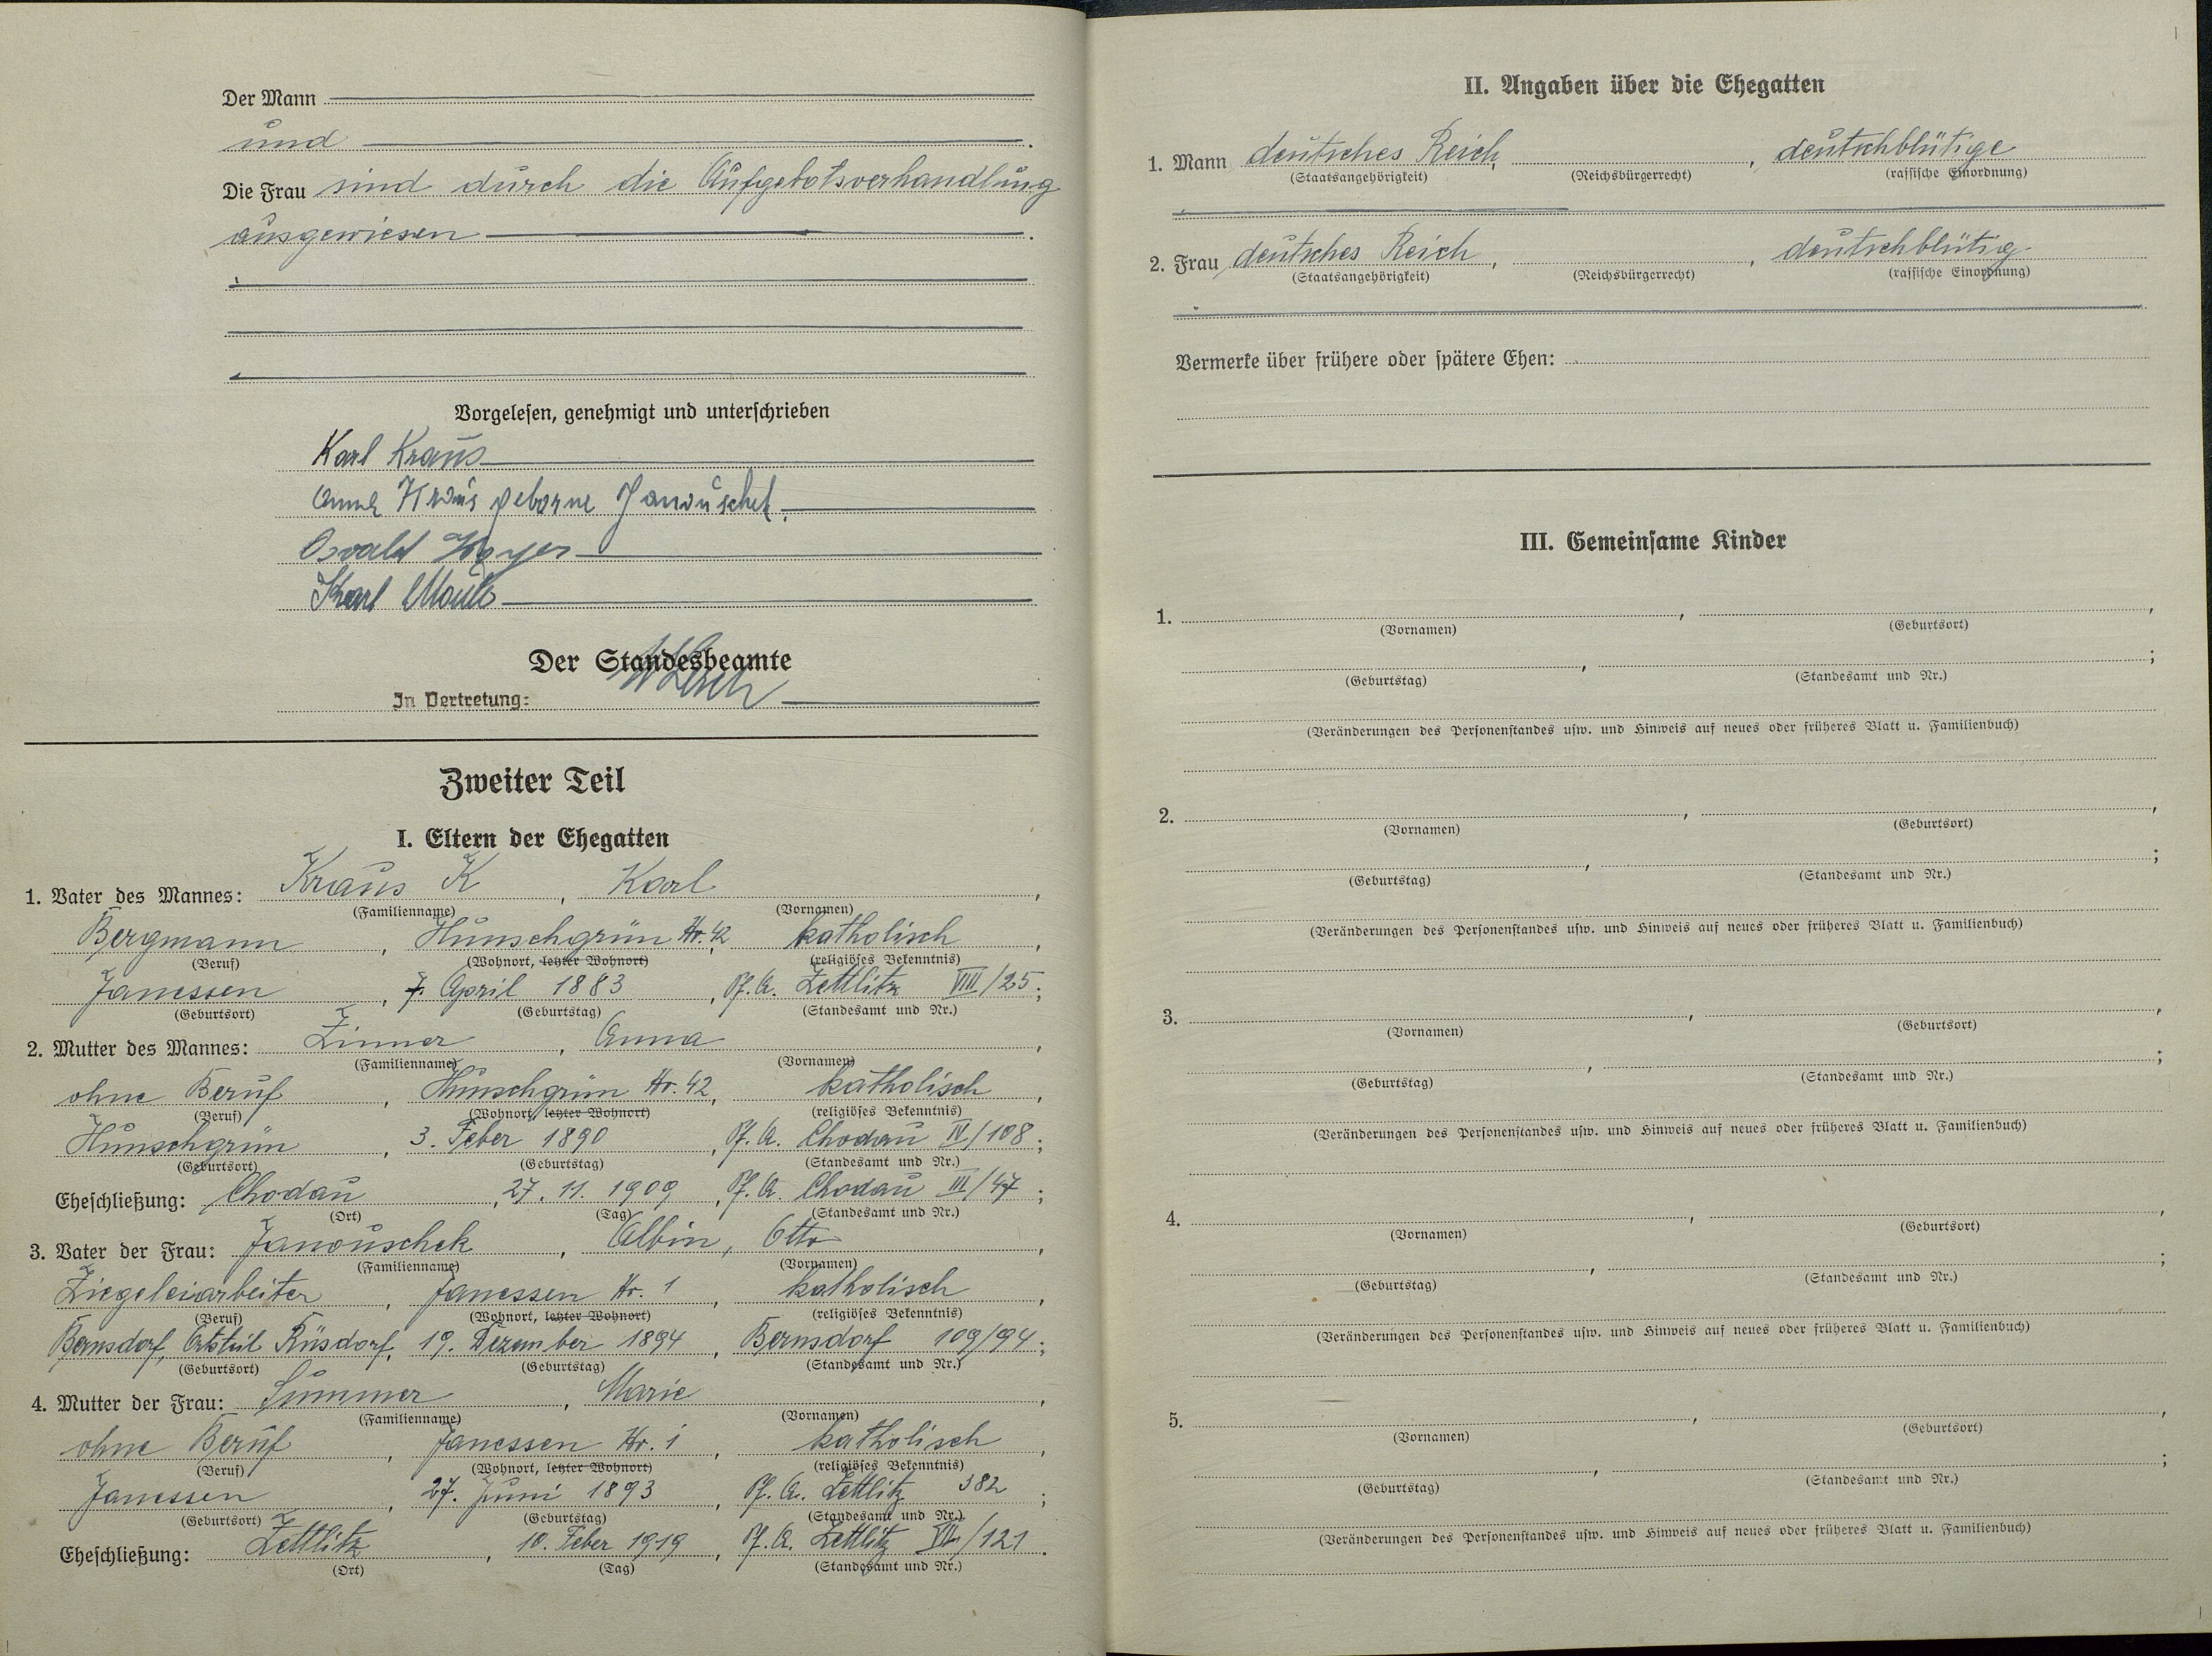 Der Mann
und
Die Frau sind durch die Aufgebotsverhandlung
ausgewiesen
Vorgelesen, genehmigt und unterschrieben
Karl Kraus
Anna Kraus geborne Janouschek.
Osvald
Karl
Der Standesbeamte
In Vertretung:
Zweiter Teil
I. Eltern der Ehegatten
1. Vater des Mannes: Kraus K, Karl,
(Familienname) (Vornamen)
Bergmann, Hunschgrün Nr. 42, katholisch,
(Beruf) (Wohnort, letzter Wohnort) (religiöses Bekenntnis)
Janessen, 7. April 1883, Pf. A. Zettlitz VIII/25;
(Geburtsort) (Geburtstag) (Standesamt und Nr.)
2. Mutter des Mannes: Zinner, Anna,
(Familienname) (Vornamen)
ohne Beruf, Hunschgrün Nr. 42, katholisch,
(Beruf) (Wohnort, letzter Wohnort) (religiöses Bekenntnis)
Hunschgrün, 3. Feber 1890, Pf. A. Chodau IV/108;
(Geburtsort) (Geburtstag) (Standesamt und Nr.)
Eheschließung: Chodau, 27. 11. 1909, Pf. A. Chodau III/47;
(Ort) (Tag) (Standesamt und Nr.)
3. Vater der Frau: Janouschek, Albin, Otto,
(Familienname) (Vornamen)
Ziegeleiarbeiter, Janessen Nr. 1, katholisch,
(Beruf) (Wohnort, letzter Wohnort) (religiöses Bekenntnis)
Bernsdorf, Ortsteil Rüsdorf, 19. Dezember 1894, Bernsdorf 109/94;
(Geburtsort) (Geburtstag) (Standesamt und Nr.)
4. Mutter der Frau: Summer, Marie,
(Familienname) (Vornamen)
ohne Beruf, Janessen Nr. 1, katholisch,
(Beruf) (Wohnort, letzter Wohnort) (religiöses Bekenntnis)
Janessen, 27. Juni 1893, Pf. A. Zettlitz 382;
(Geburtsort) (Geburtstag) (Standesamt und Nr.)
Eheschließung: Zettlitz, 10. Feber 1919, Pf. A. Zettlitz VII/121.
(Ort) (Tag) (Standesamt und Nr.)
II. Angaben über die Ehegatten
1. Mann deutsches Reich, , deutschblütige
(Staatsangehörigkeit) (Reichsbürgerrecht) (rassische Einordnung)
2. Frau deutsches Reich, , deutschblütig
(Staatsangehörigkeit) (Reichsbürgerrecht) (rassische Einordnung)
Vermerke über frühere oder spätere Ehen:
III. Gemeinsame Kinder
1. , ,
(Vornamen) (Geburtsort)
, ;
(Geburtstag) (Standesamt und Nr.)
(Veränderungen des Personenstandes usw. und Hinweis auf neues oder früheres Blatt u. Familienbuch)
2. , ,
(Vornamen) (Geburtsort)
, ;
(Geburtstag) (Standesamt und Nr.)
(Veränderungen des Personenstandes usw. und Hinweis auf neues oder früheres Blatt u. Familienbuch)
3. , ,
(Vornamen) (Geburtsort)
, ;
(Geburtstag) (Standesamt und Nr.)
(Veränderungen des Personenstandes usw. und Hinweis auf neues oder früheres Blatt u. Familienbuch)
4. , ,
(Vornamen) (Geburtsort)
, ;
(Geburtstag) (Standesamt und Nr.)
(Veränderungen des Personenstandes usw. und Hinweis auf neues oder früheres Blatt u. Familienbuch)
5. , ,
(Vornamen) (Geburtsort)
, ;
(Geburtstag) (Standesamt und Nr.)
(Veränderungen des Personenstandes usw. und Hinweis auf neues oder früheres Blatt u. Familienbuch)